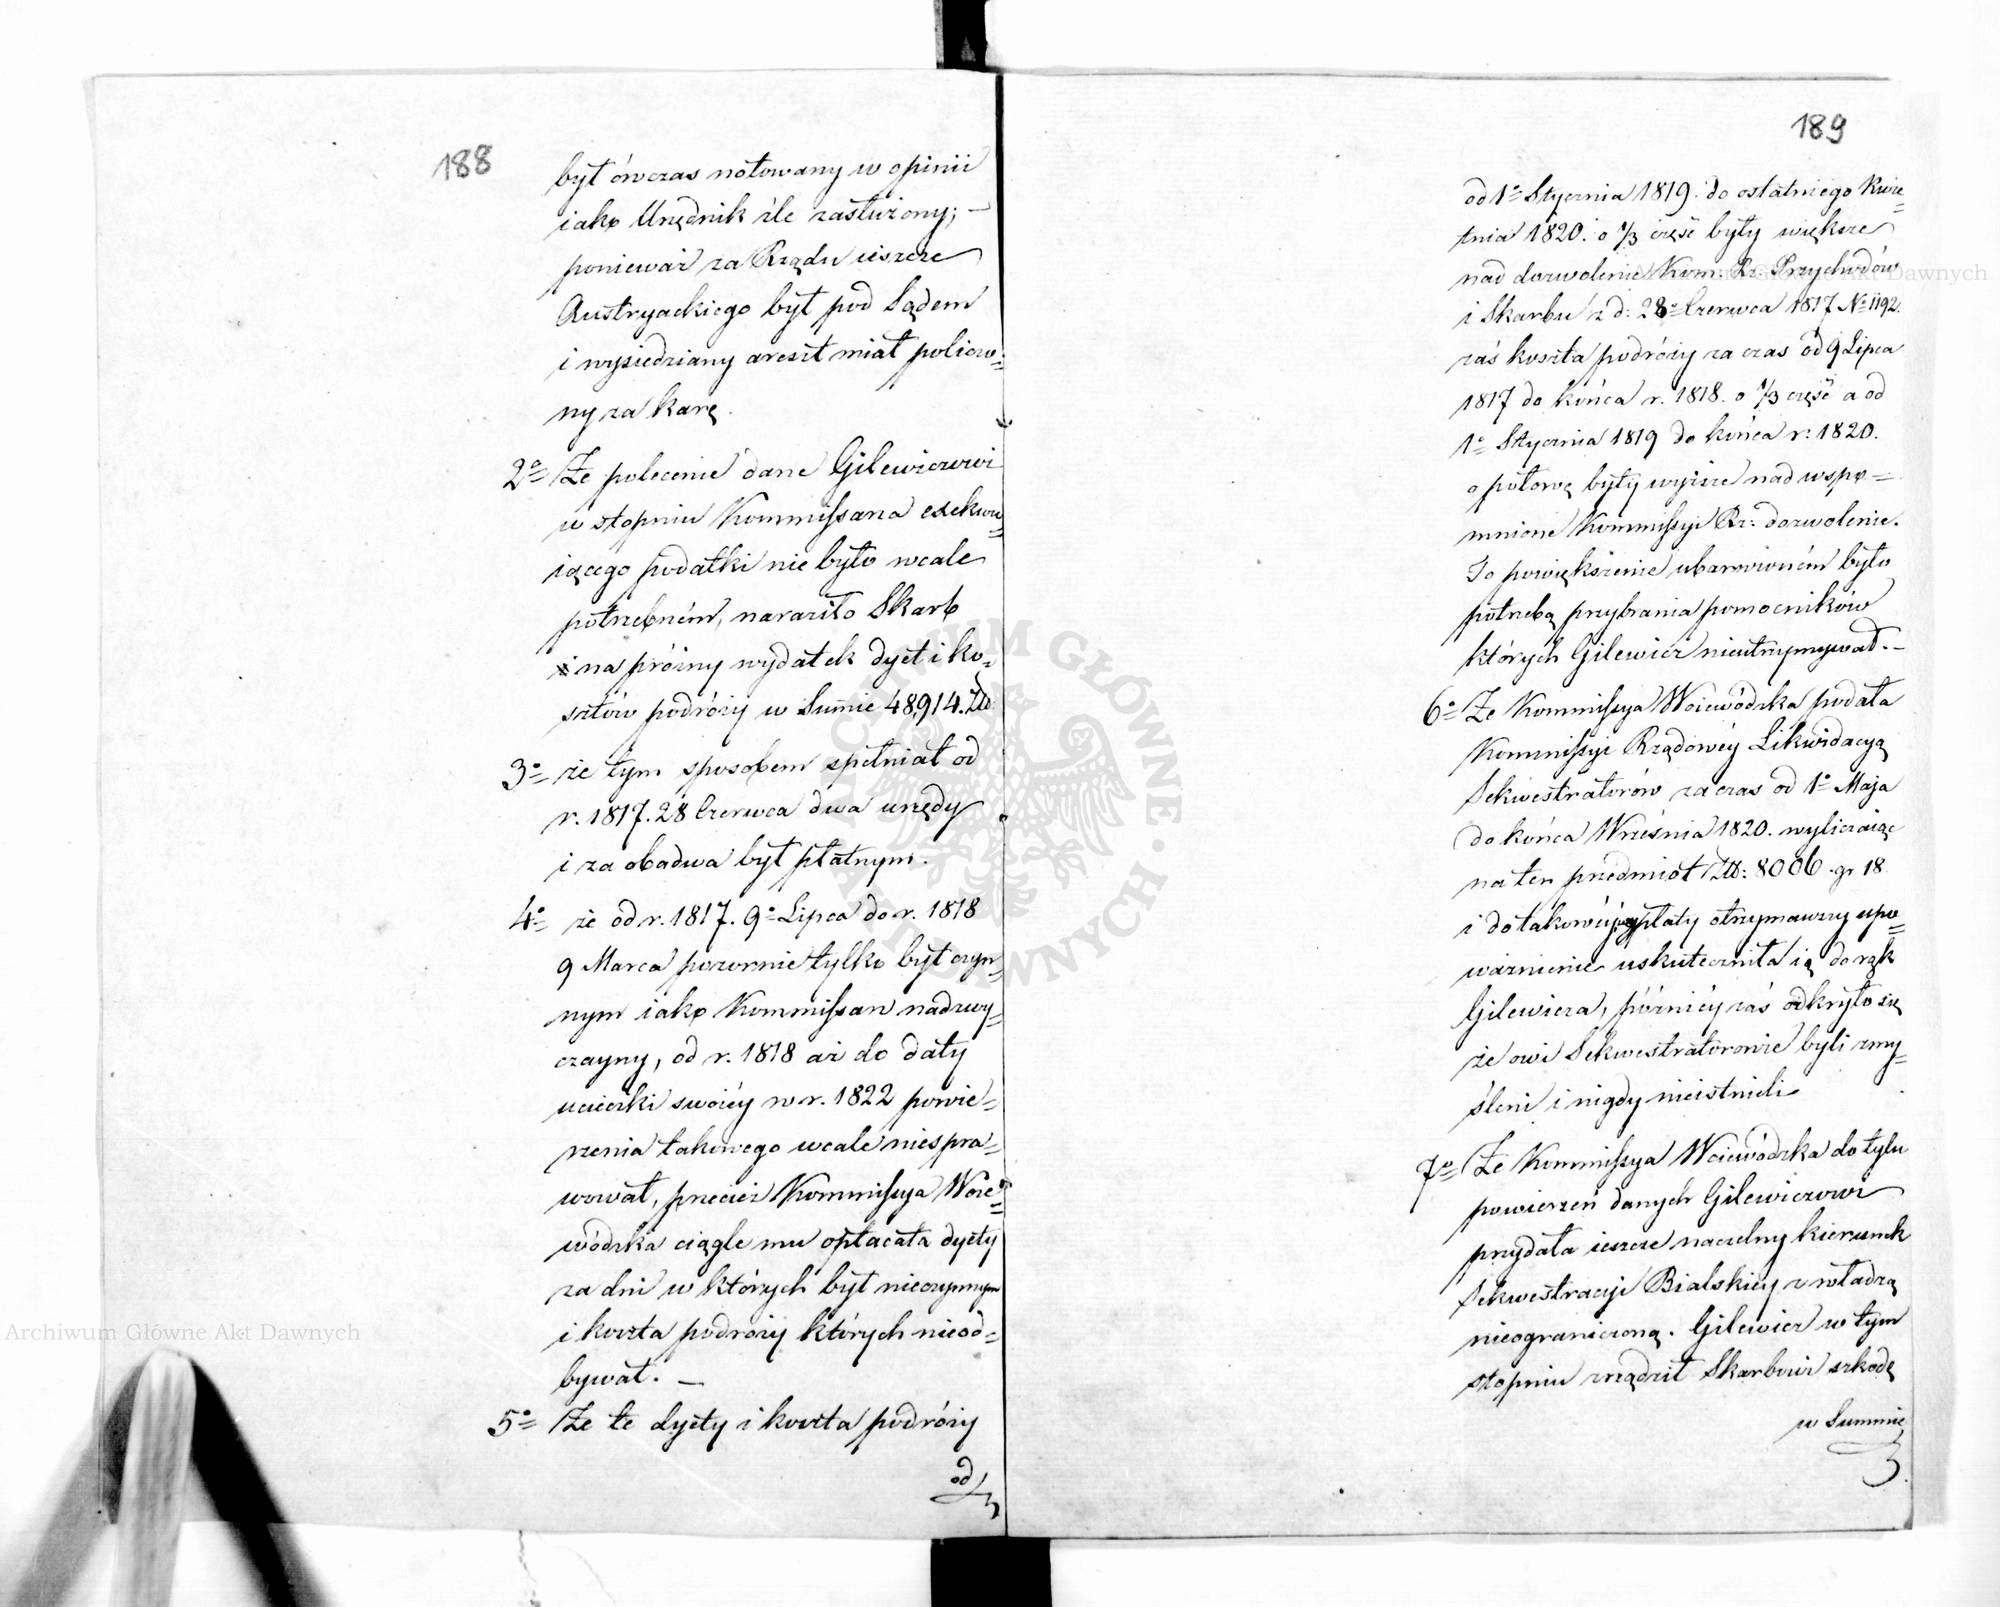 188
był ówczas notowany w opinii
iako Urzędnik źle zasłużony; —
ponieważ za Rządu ieszcze
Austryackiego był pod Sądem
i wysiedziany areszt miał policzo=
ny za karę.
2o= Że polecenie dane Gilewiczowi
w stopniu Kommissarza exekwu=
iącego podatki nie było wcale
potrzebném, naraziło Skarb
na próżny wydatek dyet i ko=
sztów podróży w Summie 48,914. Zł.
3o= że tym sposobem spełniał od
r. 1817. 28 Czerwca dwa urzędy
i za obadwa był płatnym.
4o= że od r. 1817. 9o= Lipca do r. 1818
9 Marca pozornie tylko był czyn=
nym iako Kommissarz nadzwy=
czayny, od r. 1818 aż do daty
ucieczki swoiéy w r. 1822 powie=
rzenia takowego wcale niespra=
wował, przecież Kommissya Woie=
wódzka ciągle mu opłacała dyety
za dni w których był nieczynnym
i koszta podróży których nieod=
bywał. —
5o= Że te dyety i koszta podróży
od
189
od 1o= Stycznia 1819. do ostatniego Kwie=
tnia 1820. o 1/3 część były większe
nad dozwolenie Kom: Rz: Przychodów
i Skarbu z d: 28o= Czerwca 1817 No 1192.
zaś koszta podróży za czas od 9 Lipca
1817 do końca r. 1818. o 1/3 część a od
1o= Stycznia 1819 do końca r. 1820.
o połowę były wyższe nad wspo=
mnione Kommissyi Rz: dozwolenie.
To powiększenie ubarwioném było
potrzebą przybrania pomocników
których Gilewicz nieutrzymywał. —
6o= Że Kommissya Woiewódzka podała
Kommissyi Rządowéy Likwidacyą
Sekwestratorów za czas od 1o= Maja
do końca Września 1820. wyliczaiąc
na ten przedmiot Zł: 8006. gr 18
i do takowéj wypłaty otrzymawszy upo=
ważnienie uskuteczniła ią do rąk
Gilewicza, późniéy zaś odkryto się
że owi Sekwestratorowie byli zmy=
śleni i nigdy nieistnieli.
7o= Że Kommissya Woiewódzka do tylu
powierzeń danych Gilewiczowi
przydała ieszcze naczelny kierunek
Sekwestracyi Bialskiéy z władzą
nieograniczoną. Gilewicz w tym
stopniu zrządził Skarbowi szkodę
w Summie